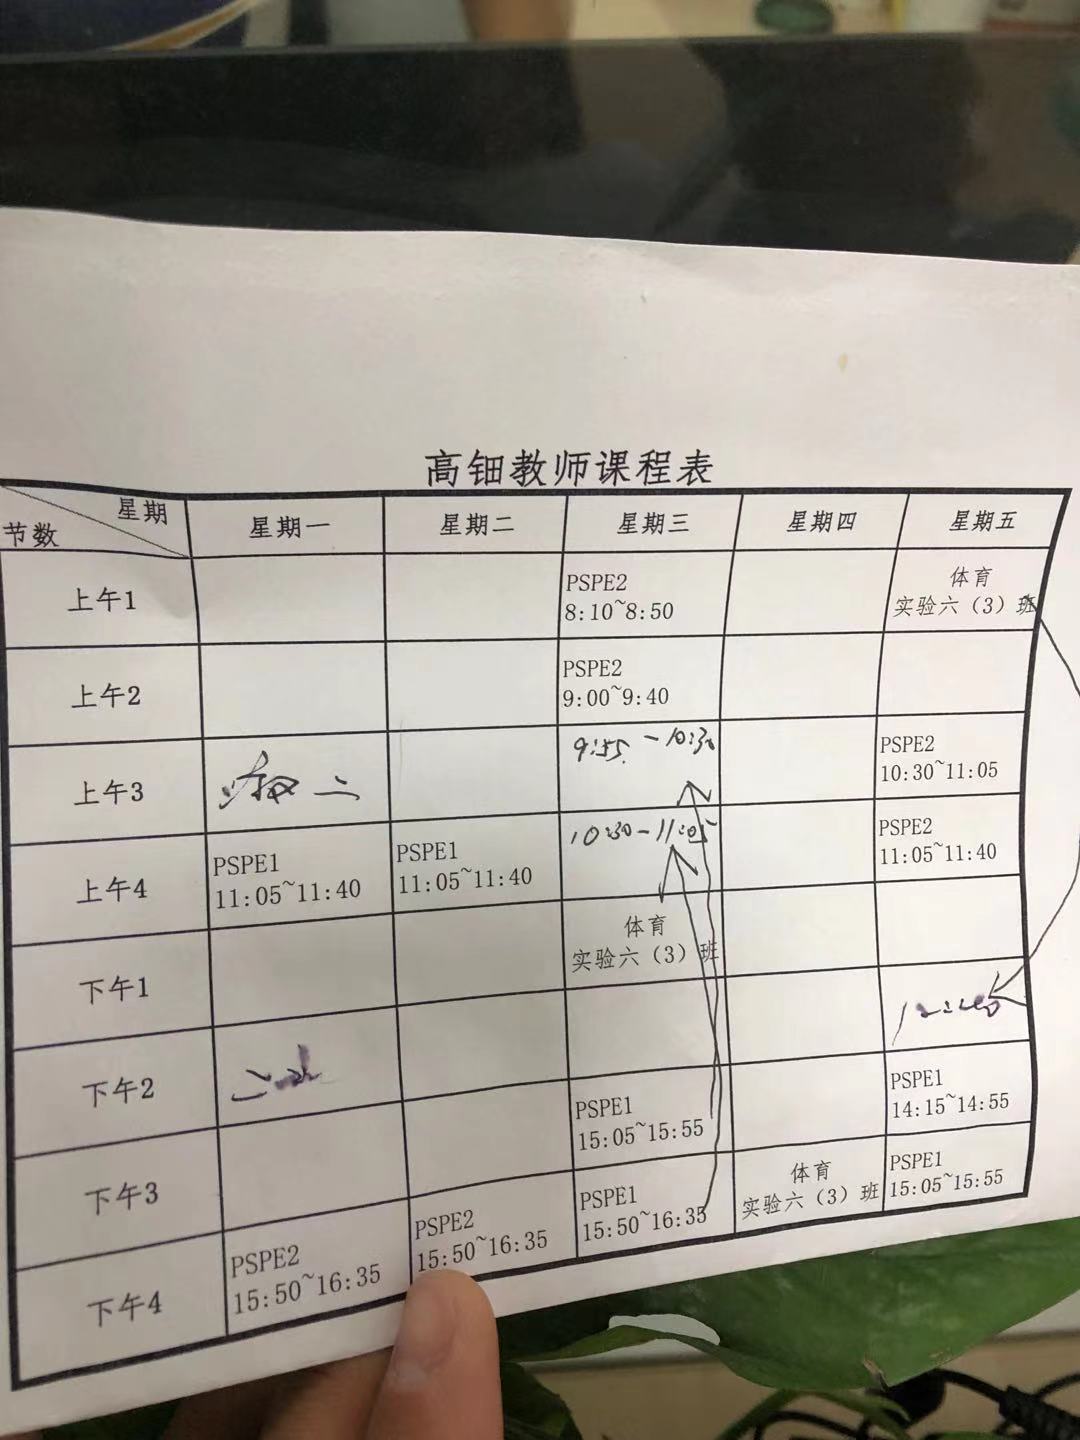 高钿教师课程表
星期
节数
星期一
星期二
星期三
星期四
星期五
上午1
PSPE2
8:10~8:50
体育
实验六（3）班
上午2
PSPE2
9:00~9:40
上午3
9:55-10:30
PSPE2
10:30~11:05
上午4
PSPE1
11:05~11:40
PSPE1
11:05~11:40
10:30-11:05
PSPE2
11:05~11:40
下午1
体育
实验六（3）班
下午2
PSPE1
15:05~15:55
PSPE1
14:15~14:55
下午3
PSPE1
15:50~16:35
体育
实验六（3）班
PSPE1
15:05~15:55
下午4
PSPE2
15:50~16:35
PSPE2
15:50~16:35